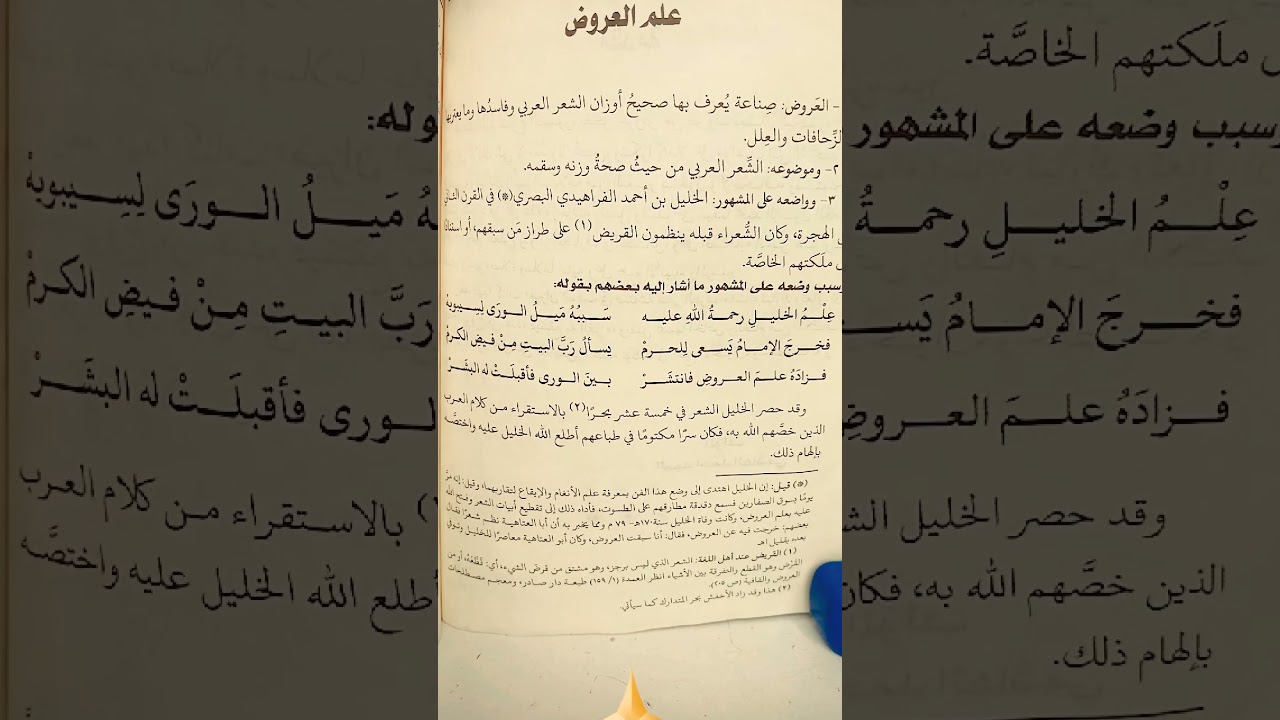 علم العروض
- العَروض: صِناعة يُعرف بها صحيحُ أوزان الشعر العربي وفاسدُها وما يعتريها
الزِّحافات والعِلل.
٢- وموضوعه: الشِّعر العربي من حيثُ صحةُ وزنه وسقمه.
٣- وواضعه على المشهور: الخليل بن أحمد الفراهيدي البصري(*) في القرن الثاني
الهجرة، وكان الشُّعراء قبله ينظمون القريض(١) على طراز مَن سبقهم، أو استنادًا
ملَكتهم الخاصَّة.
وسبب وضعه على المشهور ما أشار إليه بعضهم بقوله:
عِلْمُ الخليلِ رحمةُ اللهِ عليه سَببُهُ مَيلُ الورَى لِسِيبويهْ
فخرجَ الإمامُ يَسعى لِلحرمْ يسألُ رَبَّ البيتِ مِنْ فيضِ الكرمْ
فزادَهُ علمَ العروضِ فانتشَرْ بينَ الورى فأقبلَتْ له البشَرْ
وقد حصر الخليل الشعر في خمسة عشر بحرًا(٢) بالاستقراء من كلام العرب
الذين خصَّهم الله به، فكان سرًا مكتومًا في طباعهم أطلع الله الخليل عليه واختصَّه
بإلهام ذلك.
(*) قيل: إن الخليل اهتدى إلى وضع هذا الفن بمعرفة علم الأنغام والإيقاع لتقاربهما، وقيل: إنه مرَّ
يومًا بسوق الصفارين فسمع دقدقة مطارقهم على الطسوت، فأداه ذلك إلى تقطيع أبيات الشعر وفتح الله
عليه بعلم العروض، وكانت وفاة الخليل سنة ١٧٠هـ - ٧٩ م ومما يخبر به أن أبا العتاهية نظم شعرًا فقال
بعضهم: خرجت فيه عن العروض، فقال: أنا سبقت العروض، وكان أبو العتاهية معاصرًا للخليل وتوفي
بعده بقليل اهـ
(١) القريض عند أهل اللغة: الشعر الذي ليس برجز، وهو مشتق من قرض الشيء، أي: قَطَعَهُ، أو من
القَرْض وهو القطع والتفرقة بين الأشياء انظر العمدة (١/ ١٥٩) طبعة دار صادر، ومعجم مصطلحات
العروض والقافية (ص ٢٠٥).
(٢) هذا وقد زاد الأخفش بحر المتدارك كما سيأتي.